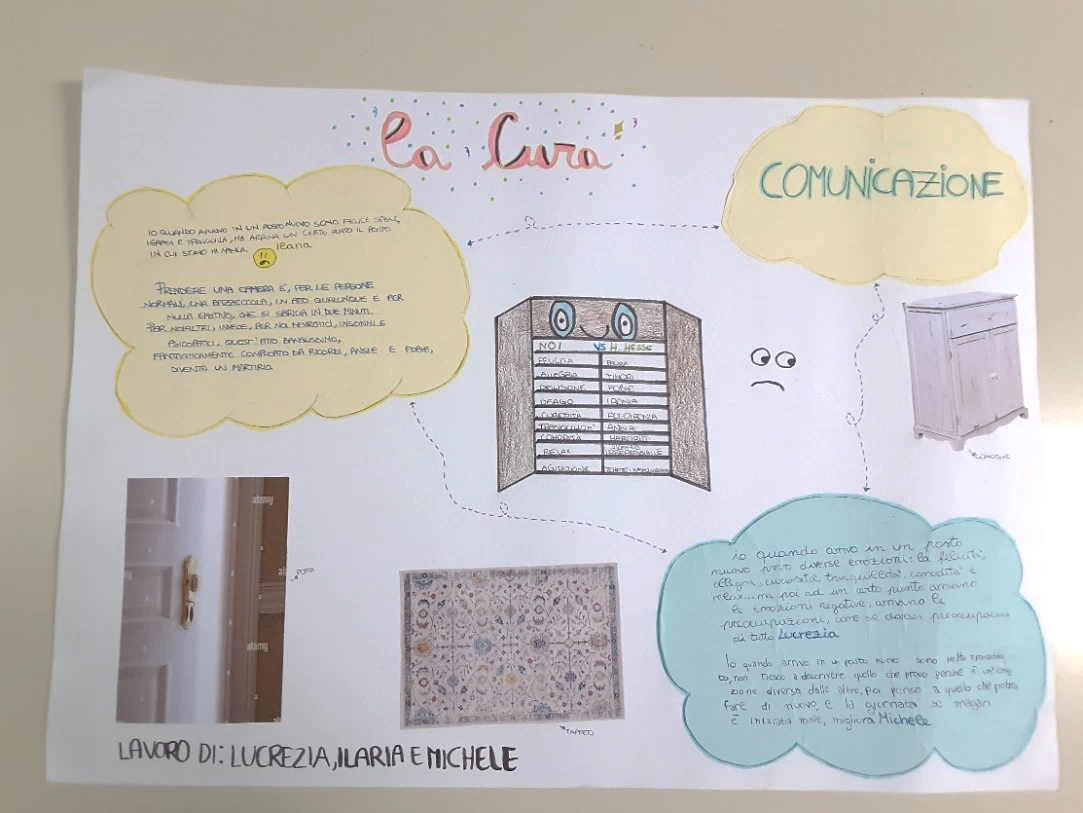 la Cura
COMUNICAZIONE
IO QUANDO ARRIVO IN UN POSTO NUOVO SONO FELICE
E TRANQUILLA, MA ARRIVA UN CERTO PUNTO IL POSTO
IN CUI STAVO MI MANCA. Ilaria
PRENDERE UNA CAMERA È, PER LE PERSONE
NORMALI, UNA BAZZECCOLA, UN ATTO QUALUNQUE E PER
NULLA EMOTIVO, CHE SI SBRIGA IN DUE MINUTI.
PER NOIALTRI, INVECE, PER NOI NEVROTICI, INSONNI E
PSICOPATICI, QUEST'ATTO BANALISSIMO,
FANTASTICAMENTE COMPLICATO DA RICORDI, ANSIE E FOBIE,
DIVENTA UN MARTIRIO
NOI VS H. HESSE
FELICITÀ PAURA
ALLEGRIA TIMORI
DELUSIONE FOBIE
DISAGIO IRONIA
CURIOSITÀ AUTOIRONIA
TRANQUILLITÀ ANSIA
COMODITÀ MARTIRIO
RELAX
AGITAZIONE
COMODINO
alamy
alamy
PORTA
alamy
TAPPETO
io quando arrivo in un posto
nuovo provo diverse emozioni: la felicità,
allegria, curiosità, tranquillità, comodità e
relax... ma poi ad un certo punto arrivano
le emozioni negative, arrivano le
preoccupazioni, come se dovessi preoccuparmi
di tutto Lucrezia
Io quando arrivo in un posto nuovo sono molto emoziona
to, non riesco a descrivere quello che provo perché è un'emo
zione diversa dalle altre, poi penso a quello che potrò
fare di nuovo, e la giornata se magari
è iniziata male, migliora Michele
LAVORO DI: LUCREZIA, ILARIA E MICHELE